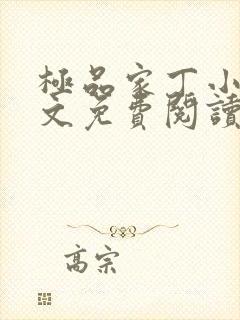 極品家丁小
文免費閱讀
高宗